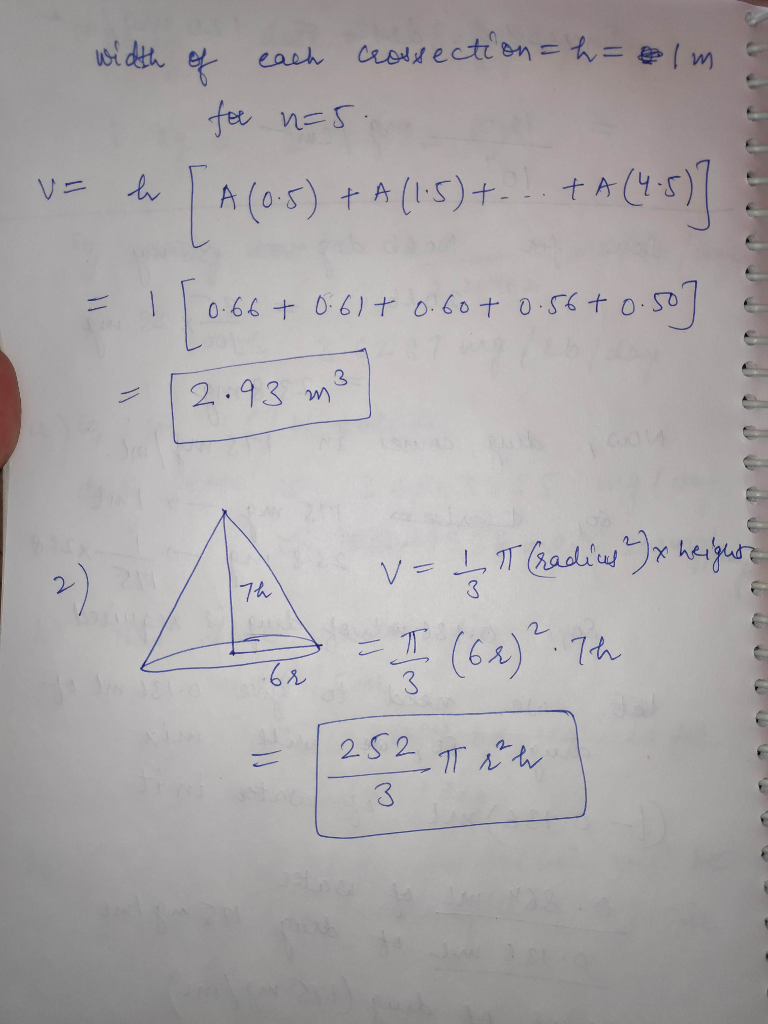 width of each crossection = h = 1 m
for n=5.
V = h [A(0.5) + A(1.5) + ... + A(4.5)]
= 1 [0.66 + 0.61 + 0.60 + 0.56 + 0.50]
= 2.93 m³
2) 7h 6r V = 1/3 π (radius²) x height
= π/3 (6r)². 7h
= 252/3 π r²h